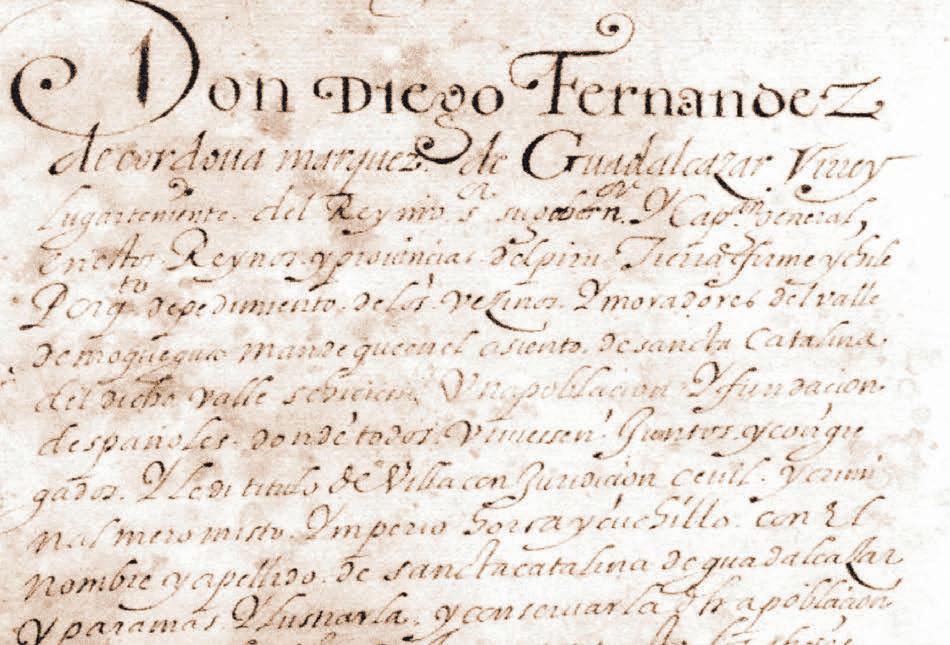 Don Diego Fernandez
de cordova marquez. de Guadalcazar Virrey
Lugarteniente. del Rey nro sr su gobernor. Y Capan general,
En estos Reynos. y provincias del piru Tierra firme y chile
Por qto de pedimiento. de los. vezinos. Y moradores del valle
de moquegua mande que en el asiento. de sancta Catalina.
del dicho valle se hiciese Una poblacion Y fundacion.
despañoles. donde todos. Viviessen. Juntos. y congre
gados. Y le di titulo de Villa con Juridicion cevil. y crimi
nal mero misto. Y mperio horca y cuchillo. con El
nombre y apellido. de sancta catalina de guadalcazar
Y para mas Ylustrarla. y conservarla dha poblacion